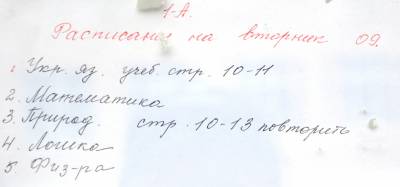 1-А.
Расписание на вторник 09.
1 Укр. яз. учеб. стр. 10-11
2. Математика
3. Природ. стр. 10-13 повторить
4. Логика
5. Физ-ра